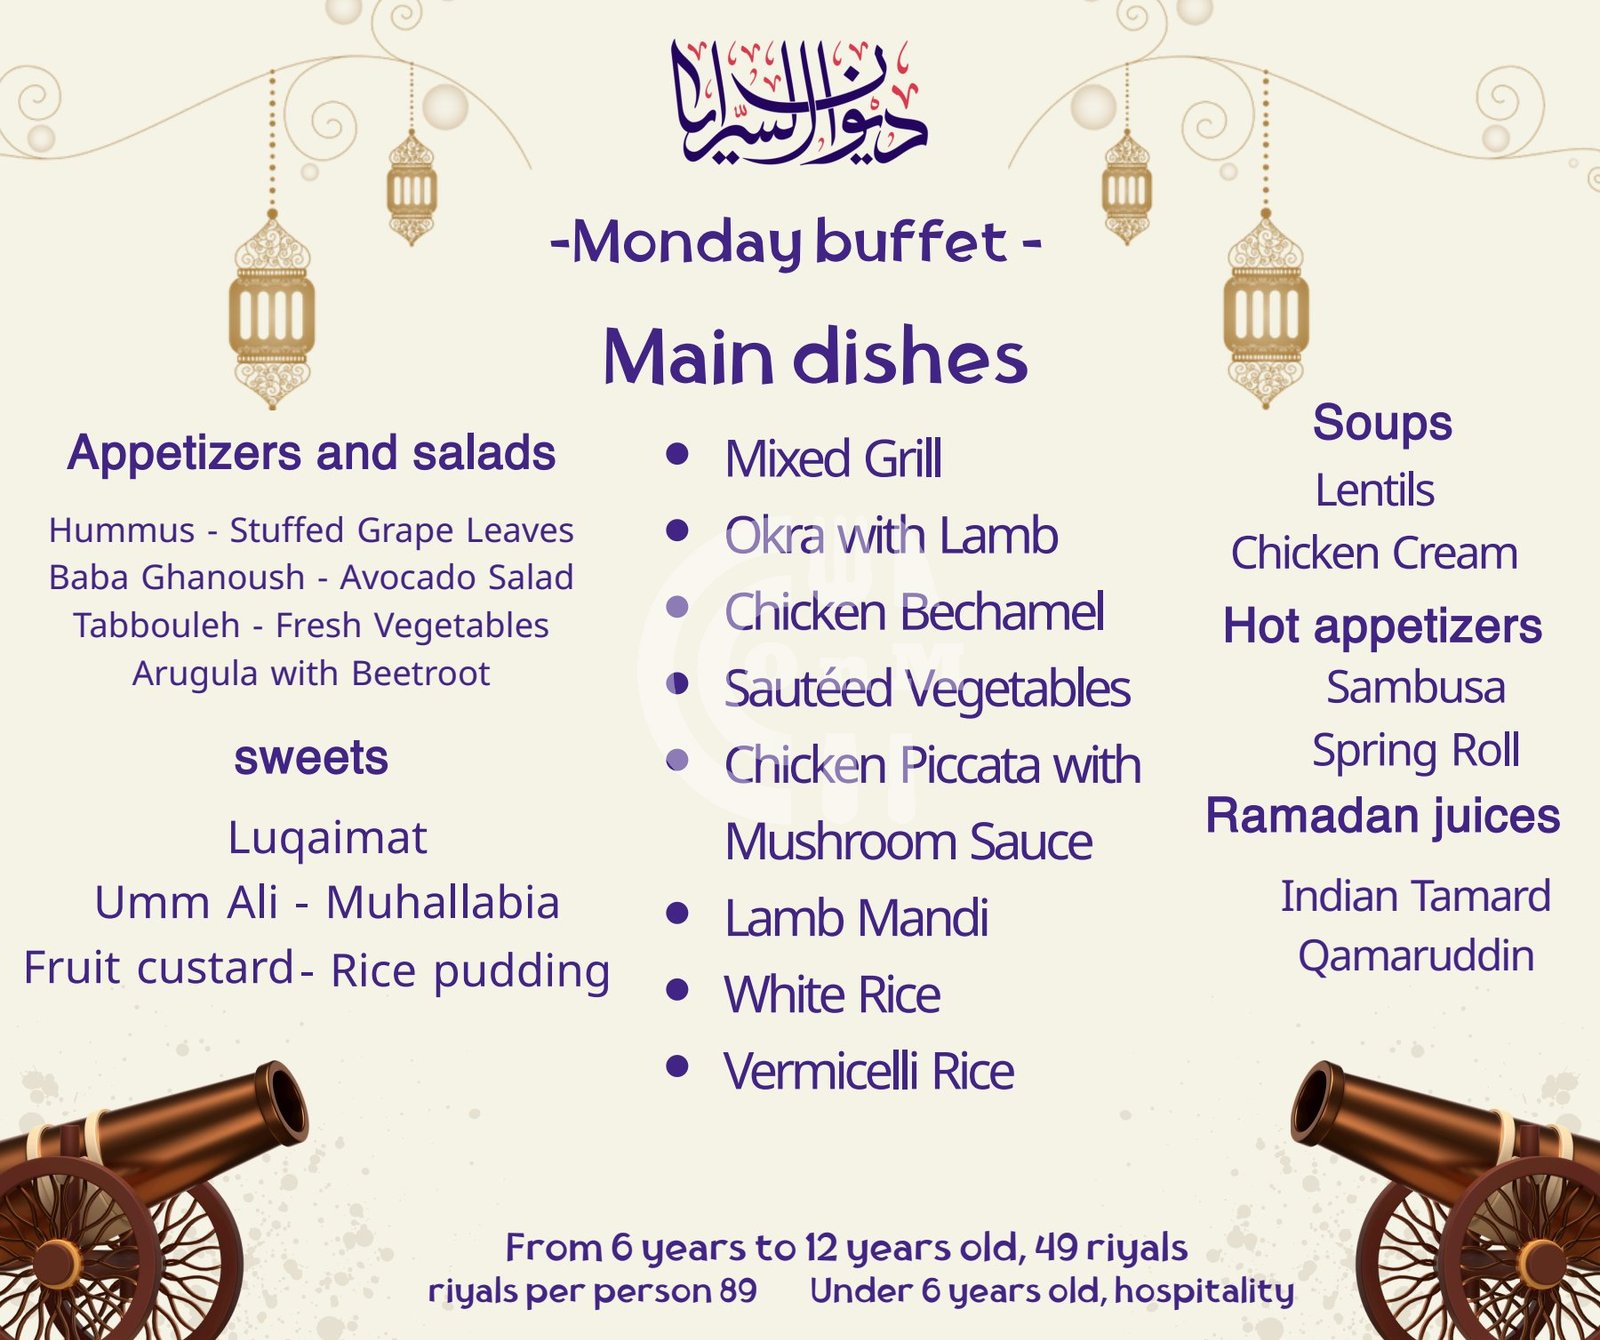 ديوان السرايا
-Monday buffet -
Main dishes
Appetizers and salads
Hummus - Stuffed Grape Leaves
Baba Ghanoush - Avocado Salad
Tabbouleh - Fresh Vegetables
Arugula with Beetroot
sweets
Luqaimat
Umm Ali - Muhallabia
Fruit custard - Rice pudding
• Mixed Grill
• Okra with Lamb
• Chicken Bechamel
• Sautéed Vegetables
• Chicken Piccata with
Mushroom Sauce
• Lamb Mandi
• White Rice
• Vermicelli Rice
Soups
Lentils
Chicken Cream
Hot appetizers
Sambusa
Spring Roll
Ramadan juices
Indian Tamard
Qamaruddin
From 6 years to 12 years old, 49 riyals
riyals per person 89 Under 6 years old, hospitality